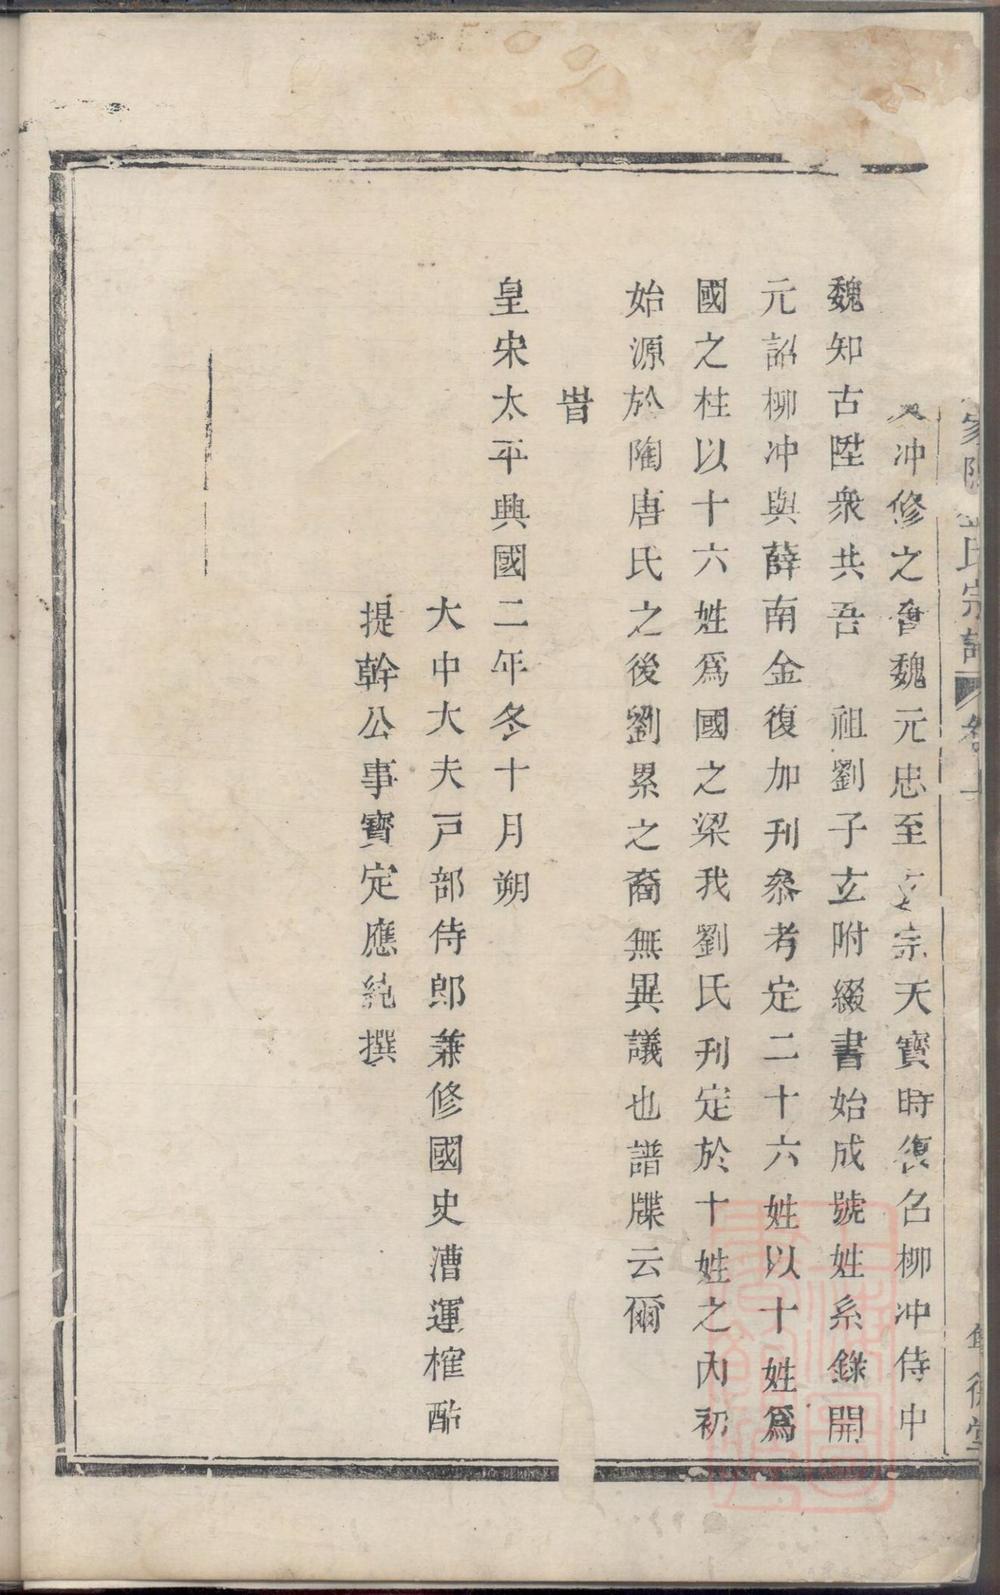 冲修之會魏元忠至玄宗天寶時復名柳冲侍中
魏知古陞衆共吾　祖劉子玄附綴書始成號姓系錄開
元詔柳冲與薛南金復加刋叅考定二十六姓以十姓爲
國之柱以十六姓爲國之梁我劉氏刋定於十姓之內初
始源於陶唐氏之後劉累之裔無異議也譜牒云爾
旹
皇宋太平興國二年冬十月朔
大中大夫戸部侍郎兼修國史漕運榷酤
提幹公事寶定應純撰
氏宗譜